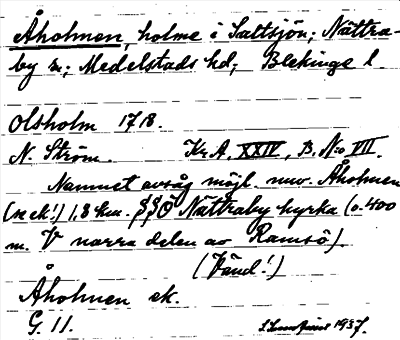 Åholmen, holme i Saltsjön; Nättra-
by sn; Medelstads hd; Blekinge l.
Olsholm 1718.
N. Ström. Kr. A. XXIV, B. N:o VII.
Namnet avsåg möjl. nuv. Åholmen
(n ek!) 1,8 km. SSO Nättraby kyrka (o. 400
m. V norra delen av Ramsö).
(Vänd!)
Åholmen ek.
G. 11. 1937.